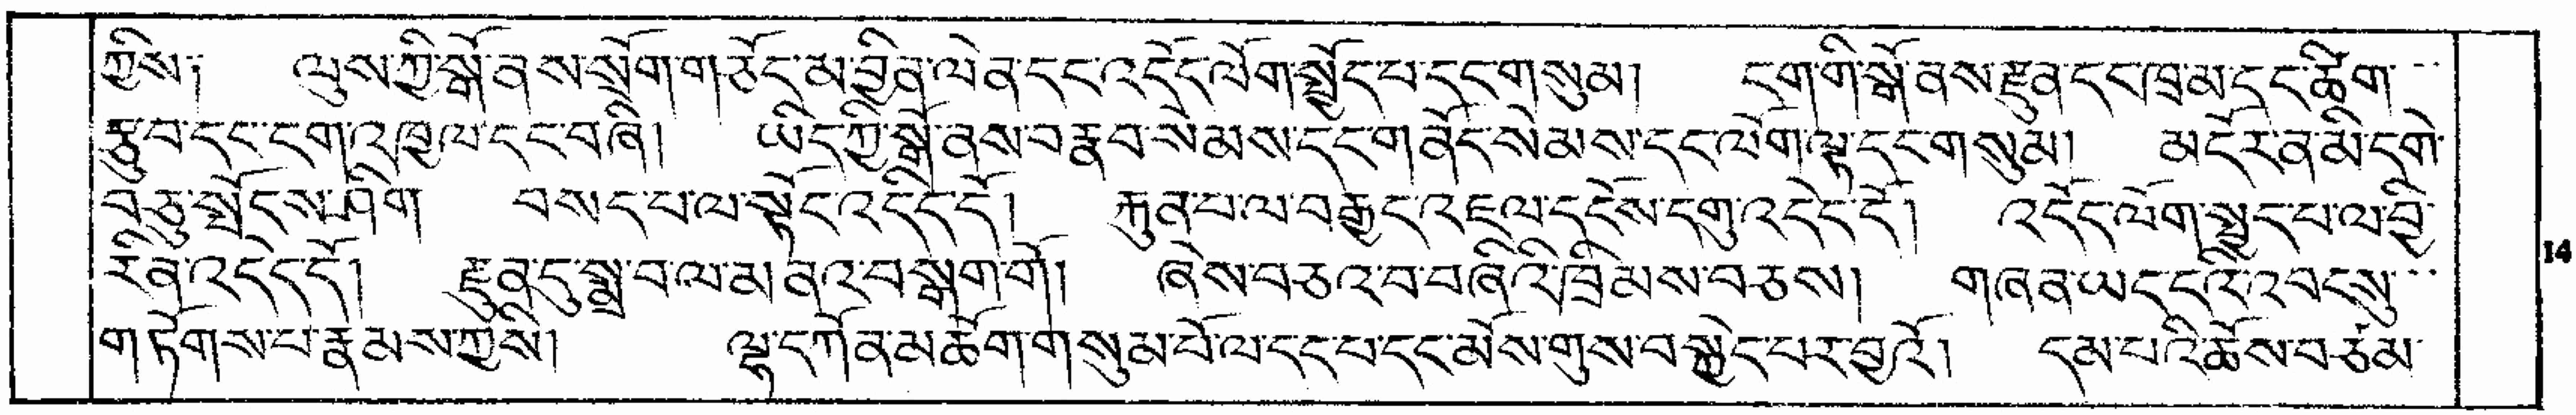 ཀྱིས། ལུས་ཀྱི་སྒོ་ནས་སྲོག་གཅོད་མ་བྱིན་ལེན་དང་འདོད་ལོག་སྤྱོད་པ་དང་གསུམ། ངག་གི་སྒོ་ནས་རྫུན་དང་ཁྲམ་དང་ཚིག་
རྩུབ་དང་ངག་འཁྱལ་དང་བཞི། ཡིད་ཀྱི་སྒོ་ནས་བརྣབ་སེམས་དང་གནོད་སེམས་དང་ལོག་ལྟ་དང་གསུམ། མདོར་ན་མི་དགེ་
བཅུ་སྤོངས་ཤིག བསད་པ་ལ་སྟོང་འདེད་དོ། རྐུན་པ་ལ་བརྒྱད་འཇལ་དངོས་དགུ་འདེད་དོ། འདོད་ལོག་སྤྱད་པ་ལ་བྱི་
རིན་འདེད་དོ། རྫུན་དུ་སྨྲ་བ་ལ་མནའ་བསྒག་གོ། ཞེས་བཅའ་བ་བཞིའི་ཁྲིམས་བཅས། གཞན་ཡང་དེའི་འབངསུ་
གཏོགས་པ་རྣམས་ཀྱིས། ལྷ་དཀོན་མཆོག་གསུམ་པོ་ལ་དད་པ་དང་མོས་གུས་བསྐྱེད་པར་བྱའོ། དམ་པའི་ཆོས་བཙམ་
14